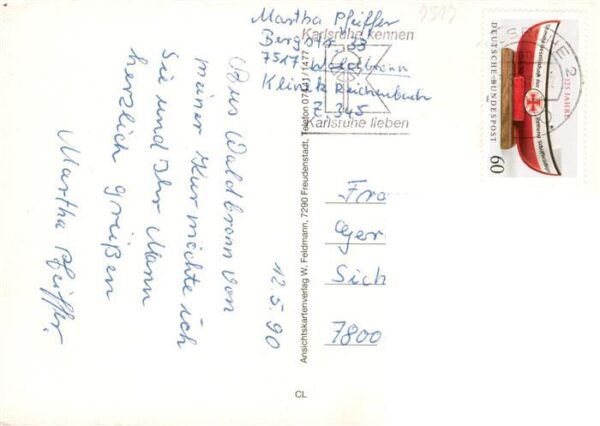 Martha Pfeiffer
Bergstr. 33
7517 Waldbronn
Klinik Reichenbach
Z 345
Karlsruhe kennen
Karlsruhe lieben
DEUTSCHE BUNDESPOST
60
125 JAHRE
Aus Waldbronn von
meiner Kur möchte ich
Sie und Ihr Mann
herzlich grüßen
Martha Pfeiffer.
12.5.90
Ansichtskartenverlag W. Feldmann, 7290 Freudenstadt, Telefon 07441/1477
Fra
Ger
Sich
7800
CL